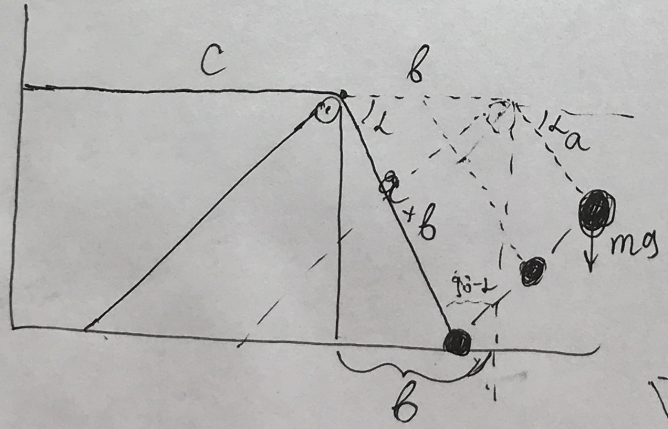 C
b
α
α
a
a
+ b
mg
90-α
b